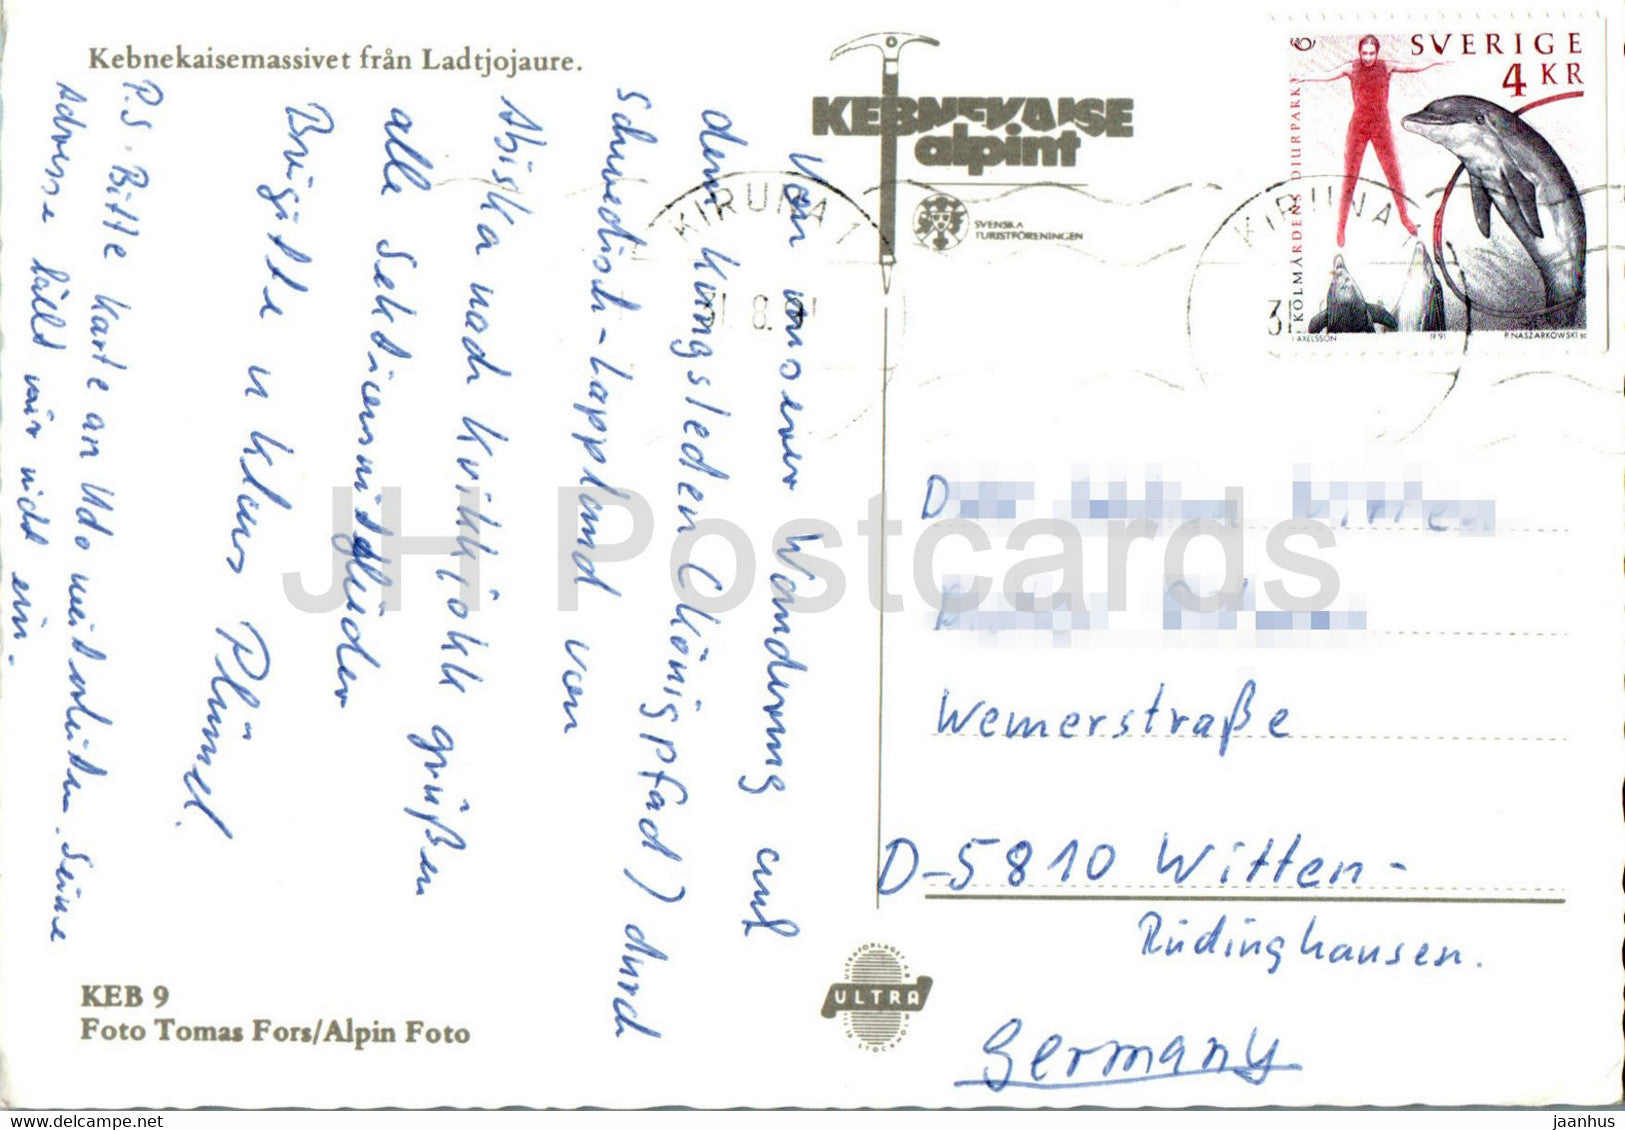 Kebnekaisemassivet från Ladtjojaure.
KEBNEKAISE
alpint
SVENSKA
TURISTFÖRENINGEN
SVERIGE
4 KR
KOLMÅRDENS DJURPARK
AXELSSON
1991
P. NASZARKOWSKI SC
KIRUNA 1
31.8.
KIRUNA 1
31
Von unserer Wanderung auf
dem Kungsleden (Königspfad) durch
Schwedisch-Lappland von
Abiska nach Kvikkjokk grüßen
alle Sektionsmitglieder
Brigitte u Klaus Plümel.
P.S. Bitte Karte an Udo weiterleiten. Seine
Adresse fällt mir nicht ein.
Witten
Wemerstraße
D-5810 Witten-
Rüdinghausen.
Germany
KEB 9
Foto Tomas Fors/Alpin Foto
ULTRAFÖRLAGET AB
ULTRA
STOCKHOLM
JH Postcards
www.delcampe.net
jaanhus